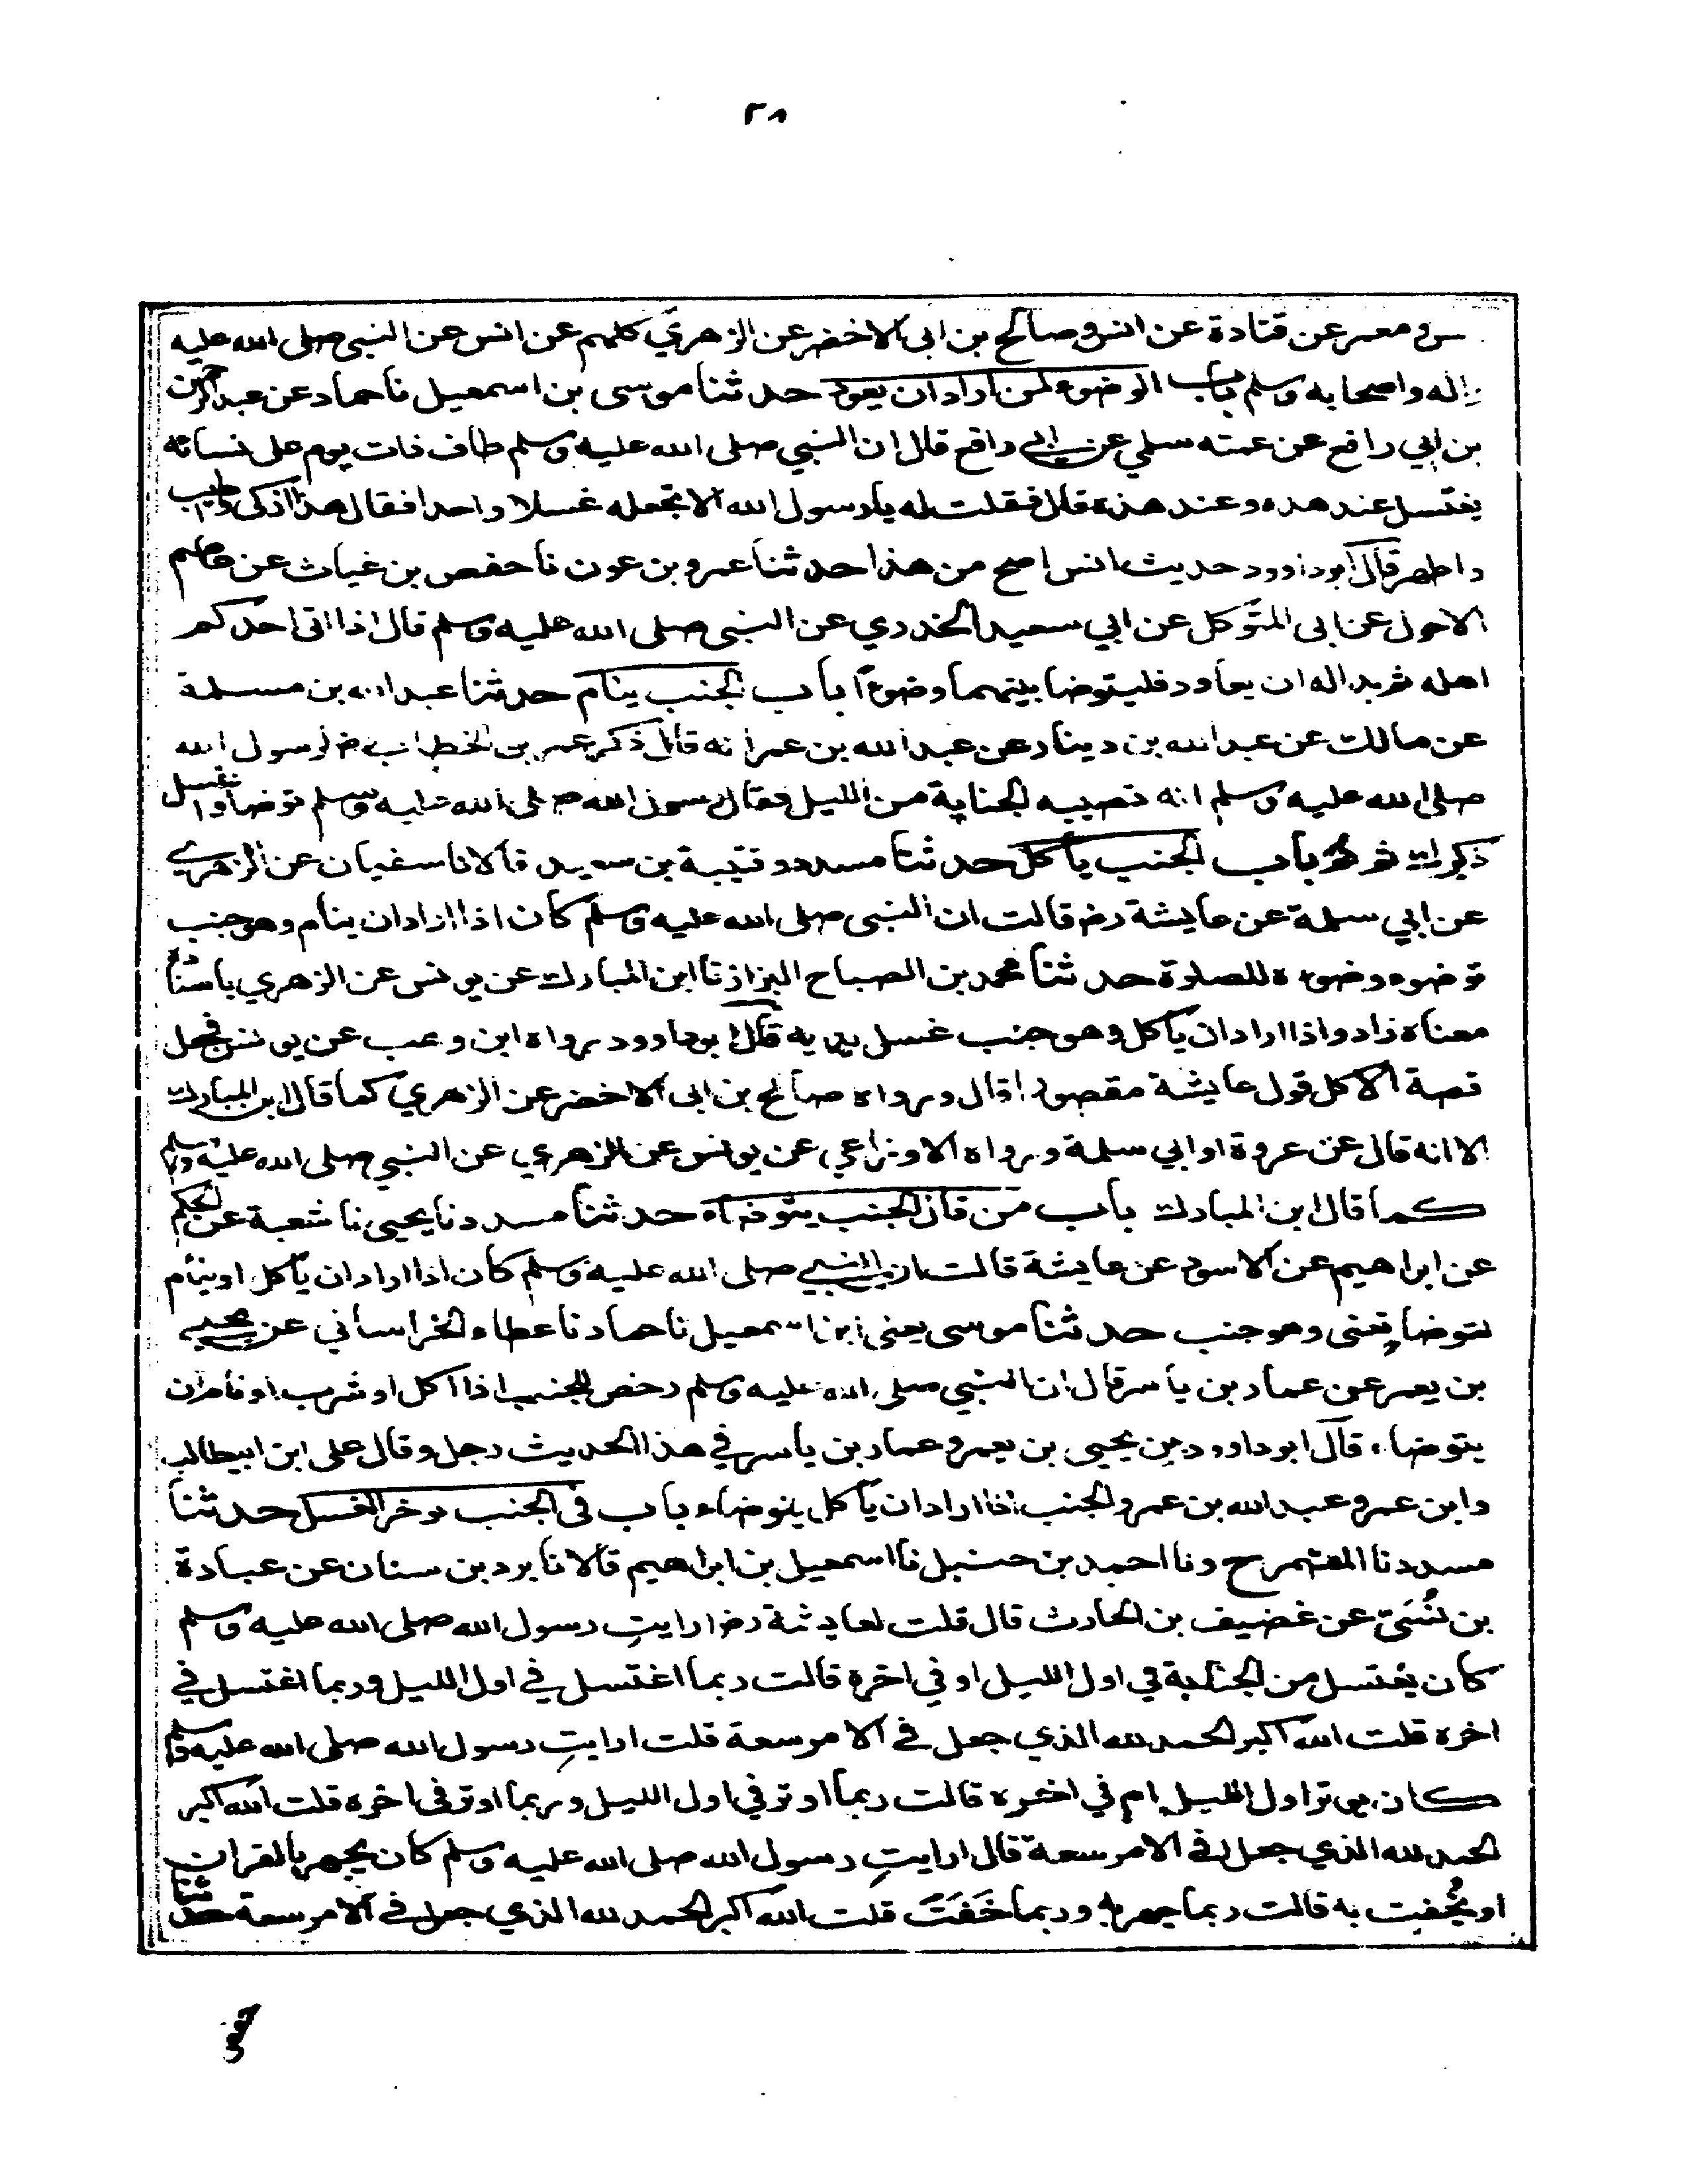 ٢٨
س ومعمر عن قتادة عن انس وصالح بن ابى الاخضر عن الزهري كلهم عن انس عن النبى صلى الله عليه
واله واصحابه وسلم باب الوضوء لمن اراد ان يعود حدثنا موسى بن اسمعيل نا حماد عن عبد الرحمن
بن ابي رافع عن عمته سلمي عن ابي رافع قال ان النبي صلى الله عليه وسلم طاف ذات يوم على نسائه
يغتسل عند هذه وعند هذه قال فقلت له يا رسول الله الا تجعله غسلا واحدا فقال هذا اذكى واطيب
واطهر قال ابو داوود حديث انس اصح من هذا حدثنا عمرو بن عون نا حفص بن غياث عن عاصم
الاحول عن ابى المتوكل عن ابي سعيد الخدري عن النبى صلى الله عليه وسلم قال اذا اتى احدكم
اهله ثم بدا له ان يعاود فليتوضا بينهما وضوءا باب الجنب ينام حدثنا عبد الله بن مسلمة
عن مالك عن عبد الله بن دينار عن عبد الله بن عمر انه قال ذكر عمر بن الخطاب رض لرسول الله
صلى الله عليه وسلم انه تصيبه الجنابة من الليل فقال رسول الله صلى الله عليه وسلم توضا واغسل
ذكرك ثم نم باب الجنب ياكل حدثنا مسدد وقتيبة بن سعيد قالا نا سفيان عن الزهري
عن ابي سلمة عن عايشة رض قالت ان النبى صلى الله عليه وسلم كان اذا اراد ان ينام وهو جنب
توضوء وضوءه للصلوة حدثنا محمد بن الصباح البزاز نا ابن المبارك عن يونس عن الزهري باسناده
معناه زاد واذا اراد ان ياكل وهو جنب غسل يديه قال ابو داوود ورواه ابن وهب عن يونس فجعل
قصة الاكل قول عايشة مقصورا قال ورواه صالح بن ابى الاخضر عن الزهري كما قال ابن المبارك
الا انه قال عن عروة او ابي سلمة ورواه الاوزاعي عن يونس عن الزهري عن النبي صلى الله عليه وسلم
كما قال ابن المبارك باب من قال الجنب يتوضاء حدثنا مسدد نا يحيى نا شعبة عن الحكم
عن ابراهيم عن الاسود عن عايشة قالت ان النبي صلى الله عليه وسلم كان اذا اراد ان ياكل او ينام
توضا يعنى وهو جنب حدثنا موسى يعنى ابن اسمعيل نا حماد نا عطاء الخراساني عن يحيى
بن يعمر عن عمار بن ياسر قال ان النبي صلى الله عليه وسلم رخص للجنب اذا اكل او شرب او نام ان
يتوضاء قال ابو داوود بين يحيى بن يعمر وعمار بن ياسر في هذا الحديث رجل وقال على ابن ابيطالب
وابن عمر وعبد الله بن عمرو الجنب اذا اراد ان ياكل يتوضاء باب فى الجنب يوخر الغسل حدثنا
مسدد نا المعتمر ح ونا احمد بن حنبل نا اسمعيل بن ابراهيم قالا نا برد بن سنان عن عبادة
بن نُسَىّ عن غضيف بن الحارث قال قلت لعايشة رض ارايتِ رسول الله صلى الله عليه وسلم
كان يغتسل من الجنابة في اول الليل او في اخره قالت ربما اغتسل في اول الليل وربما اغتسل في
اخره قلت الله اكبر الحمد لله الذي جعل في الامر سعة قلت ارايتِ رسول الله صلى الله عليه وسلم
كان يوتر اول الليل ام في اخره قالت ربما اوتر في اول الليل وربما اوتر فى اخره قلت الله اكبر
الحمد لله الذي جعل في الامر سعة قال ارايتِ رسول الله صلى الله عليه وسلم كان يجهر بالقران
او يُخفِت به قالت ربما جهر به وربما خَفَتَ قلت الله اكبر الحمد لله الذي جعل في الامر سعة حدثنا